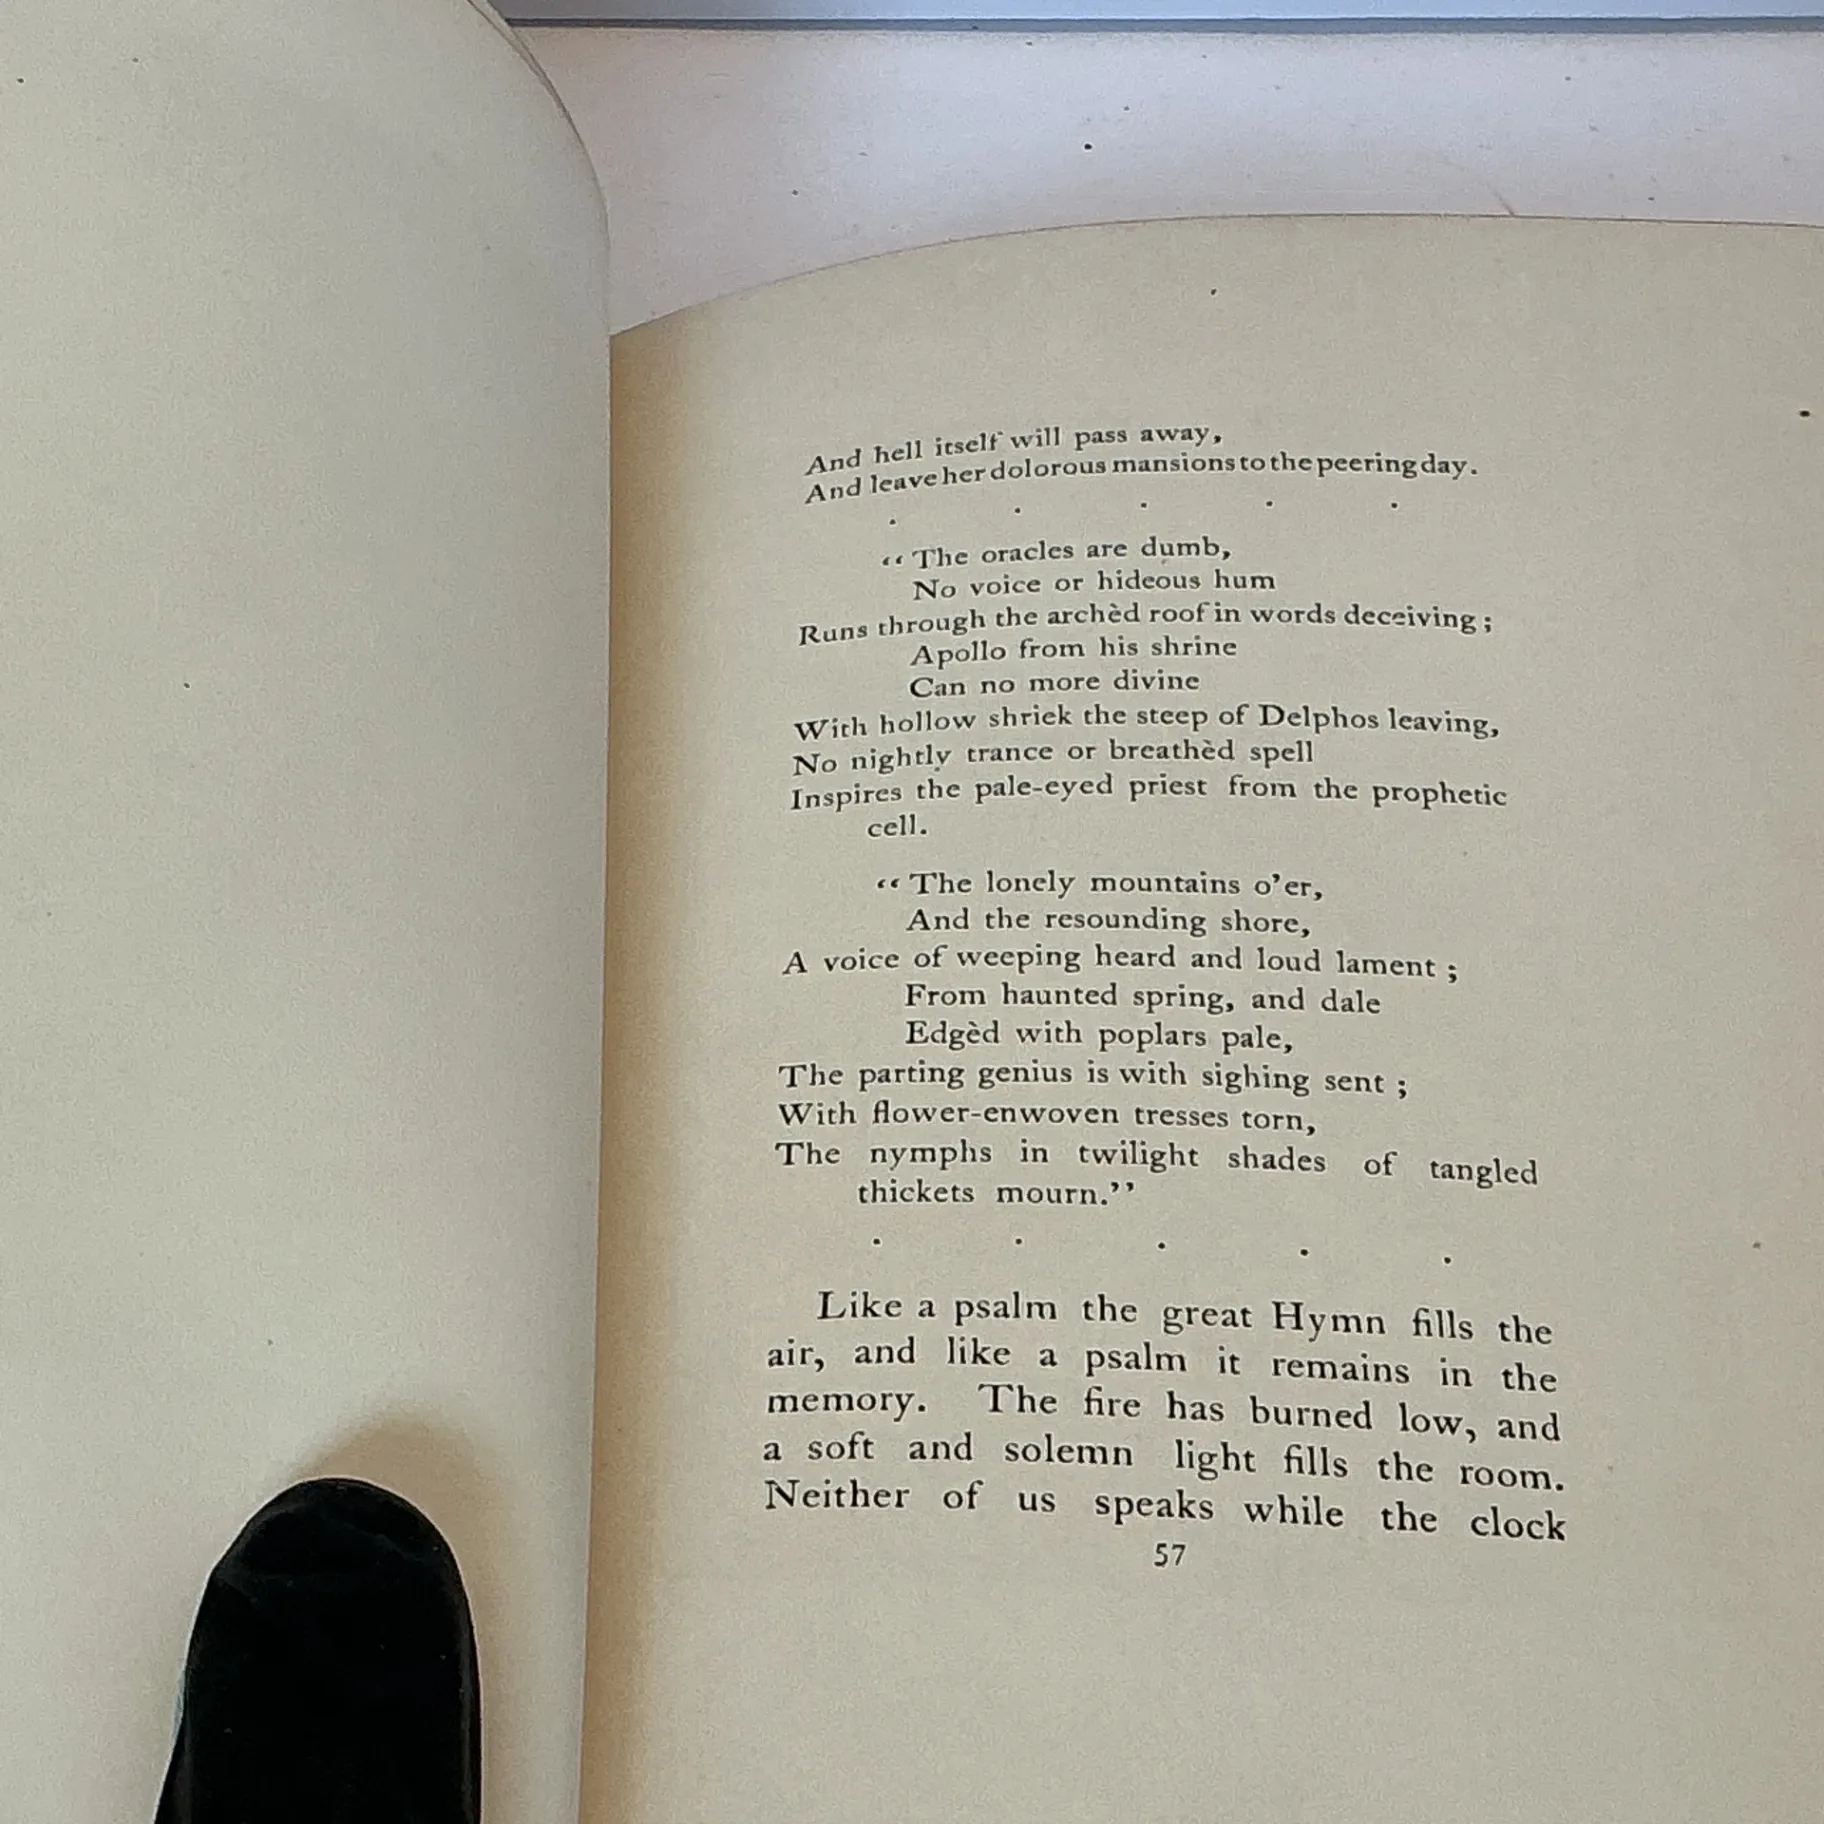 And hell itself will pass away,
And leave her dolorous mansions to the peering day.
. . . . .
“The oracles are dumb,
No voice or hideous hum
Runs through the archèd roof in words deceiving;
Apollo from his shrine
Can no more divine
With hollow shriek the steep of Delphos leaving,
No nightly trance or breathèd spell
Inspires the pale-eyed priest from the prophetic
cell.
“The lonely mountains o’er,
And the resounding shore,
A voice of weeping heard and loud lament;
From haunted spring, and dale
Edgèd with poplars pale,
The parting genius is with sighing sent;
With flower-enwoven tresses torn,
The nymphs in twilight shades of tangled
thickets mourn.”
. . . . .
Like a psalm the great Hymn fills the
air, and like a psalm it remains in the
memory. The fire has burned low, and
a soft and solemn light fills the room.
Neither of us speaks while the clock
57